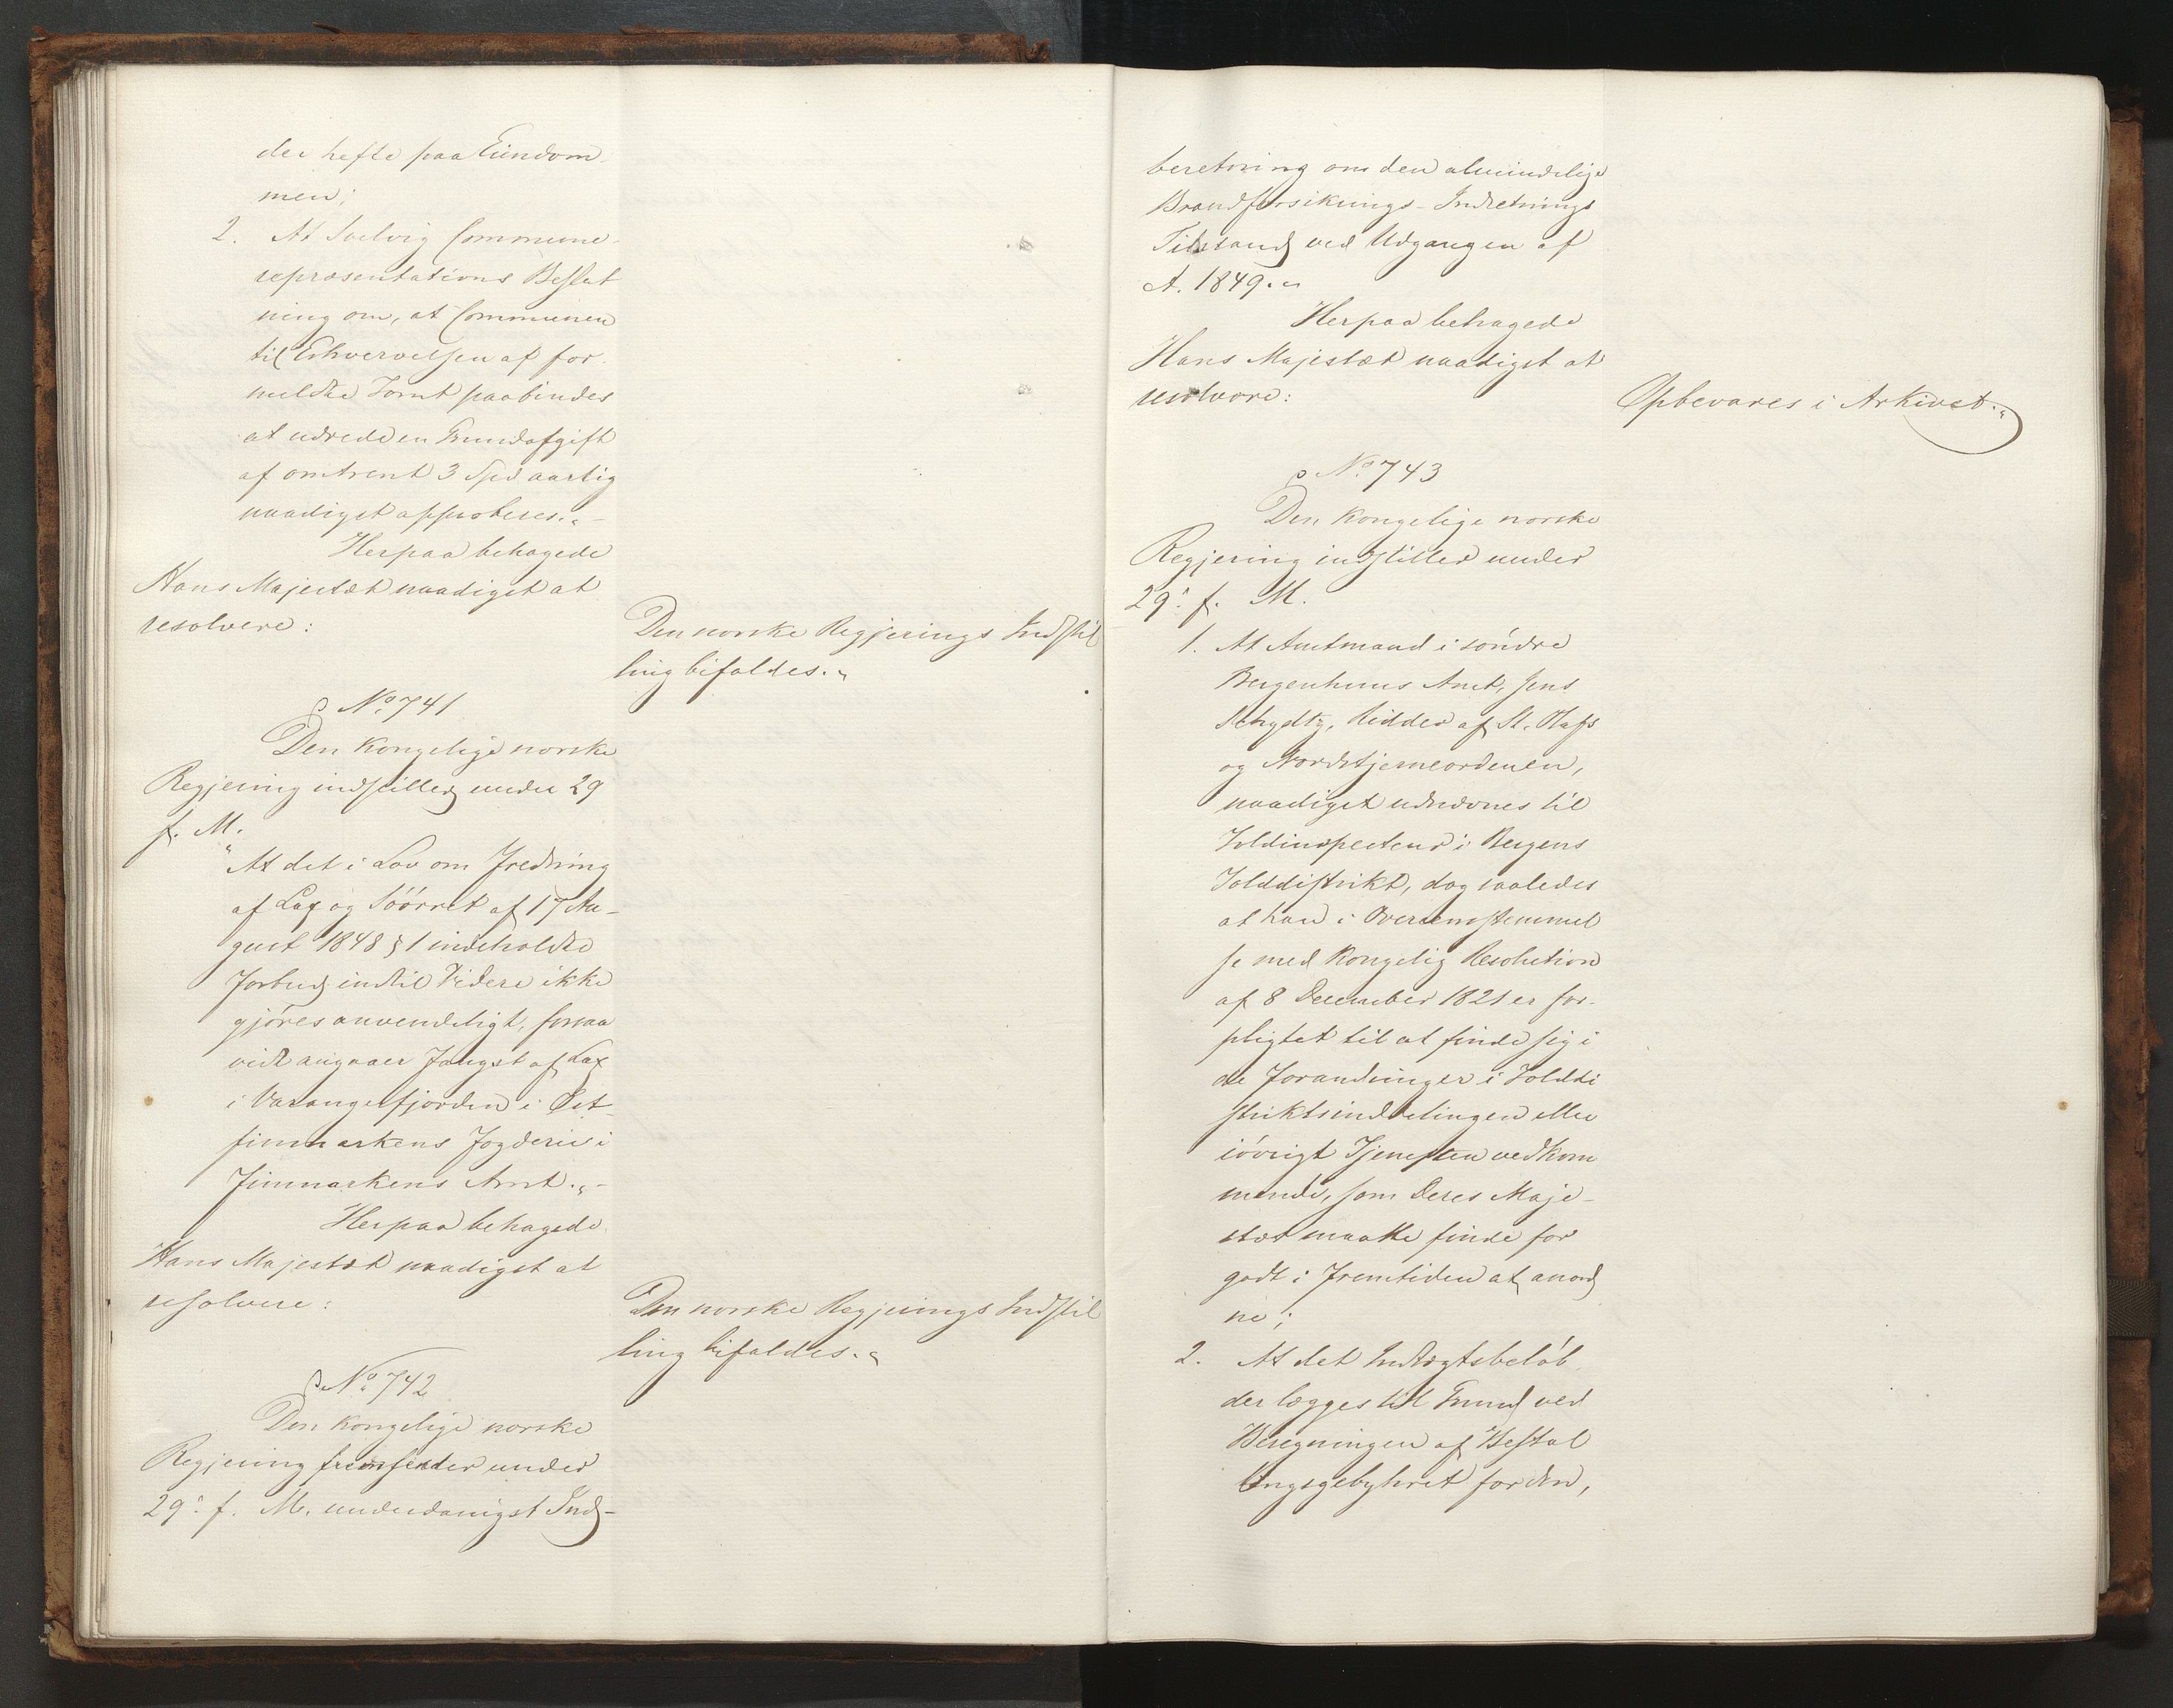 der hefte paa Eiendom-
men;
2. At Svelvig Commune-
repræsentations Beslut
ning om, at Communen
til Erhvervelsen af for-
meldte Tomt paabindes
at udrede en Grundafgift
af omtrent 3 Spd aarlig
naadigst approberes.„-
Herpaa behagede
Hans Majestæt naadigst at
resolvere:
Den norske Regjerings Indstil
ling bifaldes.„
No 741
Den Kongelige norske
Regjering indstiller under 29
f. M.
"At det i Lov om Fredning
af Lax og Söörret af 17 Au-
gust 1848 § 1 indeholdte
Forbud indtil Videre ikke
gjöres anvendeligt, forsaa
vidt angaaer Fangst af Lax
i Varangerfjorden i Öst-
finmarkens Fogderie i
Finmarkens Amt.„-
Herpaa behagede
Hans Majestæt naadigst at
resolvere:
Den norske Regjerings Indstil
ling bifaldes.„
No 742
Den Kongelige norske
Regjering fremsender under
29: f. M. underdanigst Ind-
beretning om den almindelige
Brandforsikrings-Indretnings
Tilstand ved Udgangen af
A. 1849.„
Herpaa behagede
Hans Majestæt naadigst at
resolvere:
Opbevares i Arkivet.„
No 743
Den Kongelige norske
Regjering indstiller under
29: f. M.
1. At Amtmand i söndre
Bergenhuus Amt, Jens
Schydtz, Ridder af St. Olafs
og Nordstjerneordenen,
naadigst udnævnes til
Toldinspecteur i Bergens
Tolddistrikt, dog saaledes
at han i Overeensstemmel
se med Kongelig Resolution
af 8 December 1821 er for-
pligtet til at finde sig i
de Forandringer iOlddi
striktsinddelingen eller
iövrigt Tjenesten vedkom
mende, som Deres Maje-
stæt maatte finde for
godt i Fremtiden at anord
ne;
2. At det Indtægtsbelöb
der lægges til Grund ved
Beregningen af Bestal
lingsgebyhret for den,